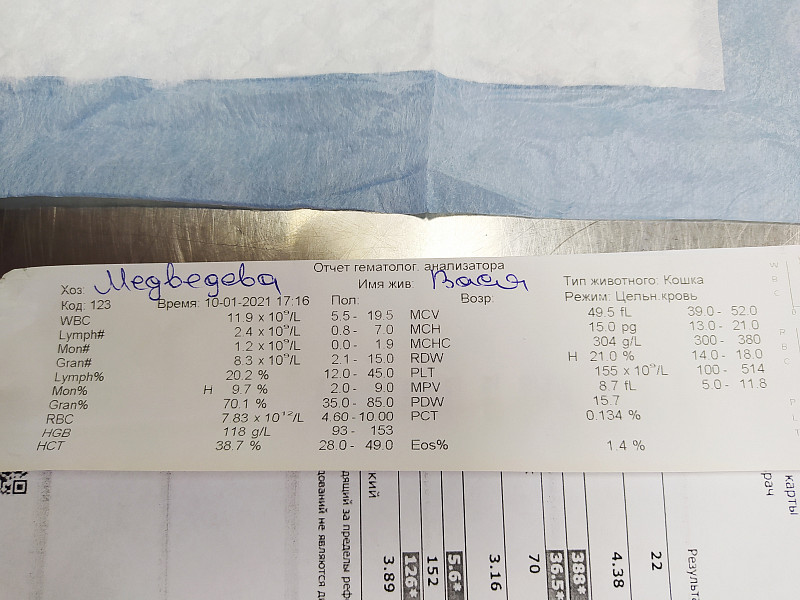 Отчет гематолог. анализатора
Хоз: Медведева Имя жив: Вася Тип животного: Кошка
Код: 123 Время: 10-01-2021 17:16 Пол: Возр: Режим: Цельн.кровь
WBC 11.9 x 10⁹/L 5.5 - 19.5 MCV 49.5 fL 39.0 - 52.0
Lymph# 2.4 x 10⁹/L 0.8 - 7.0 MCH 15.0 pg 13.0 - 21.0
Mon# 1.2 x 10⁹/L 0.0 - 1.9 MCHC 304 g/L 300 - 380
Gran# 8.3 x 10⁹/L 2.1 - 15.0 RDW H 21.0 % 14.0 - 18.0
Lymph% 20.2 % 12.0 - 45.0 PLT 155 x 10⁹/L 100 - 514
Mon% H 9.7 % 2.0 - 9.0 MPV 8.7 fL 5.0 - 11.8
Gran% 70.1 % 35.0 - 85.0 PDW 15.7
RBC 7.83 x 10¹²/L 4.60 - 10.00 PCT 0.134 %
HGB 118 g/L 93 - 153
HCT 38.7 % 28.0 - 49.0 Eos% 1.4 %
карты
рач
Результа
22
4.38
388*
36.5*
70
3.16
5.6*
152
126*
3.89
кий
дящий за пределы реф
дований не являются д